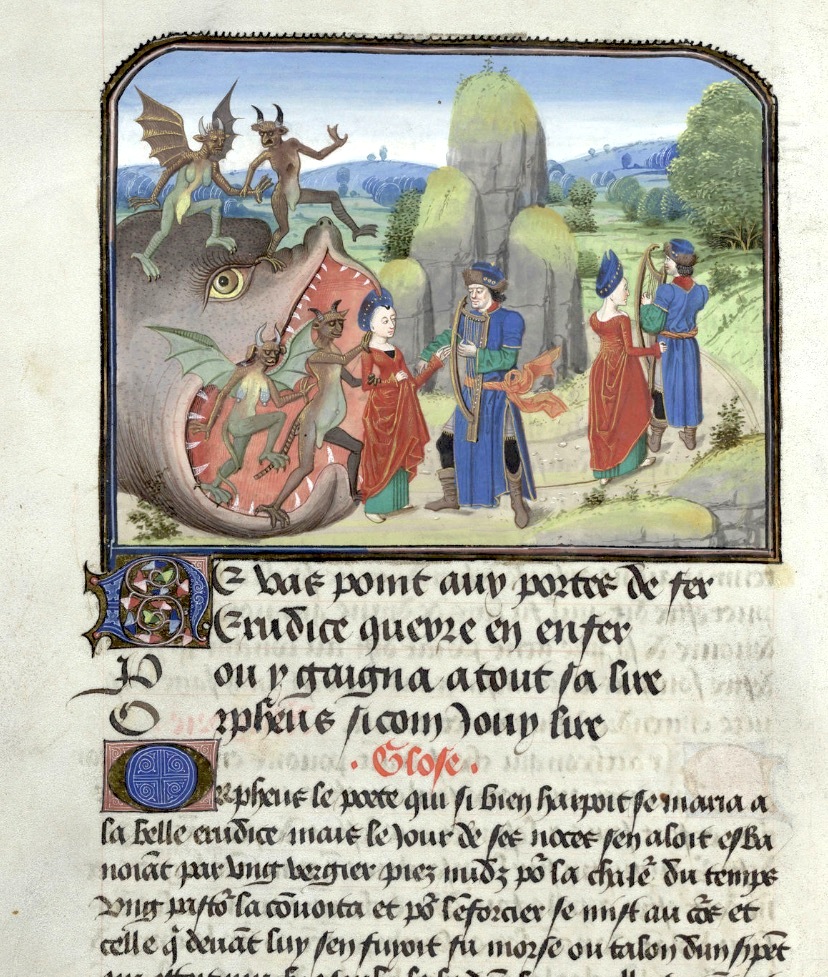 Ne vas point aux portes de fer
Erudice querre en enfer
Pou y gaigna a tout sa lire
Orpheus si com jouy lire
.Glose.
Orpheus le poete qui si bien harpoit se maria a
la belle erudice mais le jour de ses noces sen aloit esba
noiãt par ung vergier piez nudz põ la chalẽ du temps
ung pastõ la cõvoita et põ lẽforcier se mist au cõs et
celle q̃ devãt luy sen fuyoit fu morse ou talon dun sẽpẽt